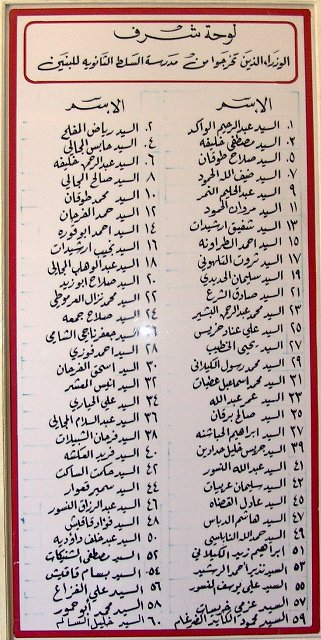 لوحة شرف
الوزراء الذين تخرجوا من مدرسة السلط الثانويه للبنين
الاسم
الاسم
١. السيد عبدالرحيم الواكد
٢. السيد رياض المفلح
٣. السيد مصطفى خليفه
٤. السيد حابس المجالي
٥. السيد صلاح طوقان
٦. السيد عبدالرحمن خليفه
٧. السيد ضيف الله الحمود
٨. السيد صالح المجالي
٩. السيد عبدالحليم النمر
١٠. السيد محمد طوقان
١١. السيد مروان الحمود
١٢. السيد حمد الفرحان
١٣. السيد شفيق ارشيدات
١٤. السيد احمد ابوقوره
١٥. السيد احمد الطراونه
١٦. السيد نجيب ارشيدات
١٧. السيد ثروت التلهوني
١٨. السيد عبدالوهاب المجالي
١٩. السيد سليمان الحديدي
٢٠. السيد صلاح ابوزيد
٢١. السيد صادق الشرع
٢٢. السيد محمد نزال العرموطي
٢٣. السيد محمد عبدالرحيم البشير
٢٤. السيد صلاح جمعه
٢٥. السيد علي عناد خريس
السيد جعفر ناجي الشامي
٢٧. السيد يحيى الخطيب
٢٨. السيد احمد فوزي
٢٩. السيد محمد رسول الكيلاني
٣٠. السيد اسحق الفرحان
٣١. السيد محمد اسماعيل عضيات
٣٢. السيد انيس المعشر
٣٣. السيد عمر عبدالله
٣٤. السيد علي الحياري
٣٥. السيد صالح برقان
٣٦. السيد عبدالسلام المجالي
٣٧. السيد ابراهيم الحباشنه
٣٨. السيد فرحان الشبيلات
٣٩. السيد جريس خليل حدادين
٤٠. السيد فريد العكشه
٤١. السيد عبدالله النسور
٤٢. السيد حكمت الساكت
٤٣. السيد سليمان عربيات
٤٤. السيد سمير قعوار
٤٥. السيد عادل القضاه
٤٦. السيد عبدالرزاق النسور
٤٧. السيد هاشم الدباس
٤٨. السيد فؤاد قاقيش
٤٩. السيد حمدالله النابلسي
٥٠. السيد عبد خلف داوديه
٥١. ابراهيم زيد الكيلاني
٥٢. السيد مصطفى الشنيكات
٥٣. السيد نذير احمد الرشيد
٥٤. السيد بسام قاقيش
٥٥. السيد علي يوسف النسور
٥٦. السيد علي الفزاع
٥٧. السيد عزمي خريسات
٥٨. السيد محمد ابو حمور
٥٩. السيد محمود الكايد الضرغام
٦٠. السيد خليل السالم